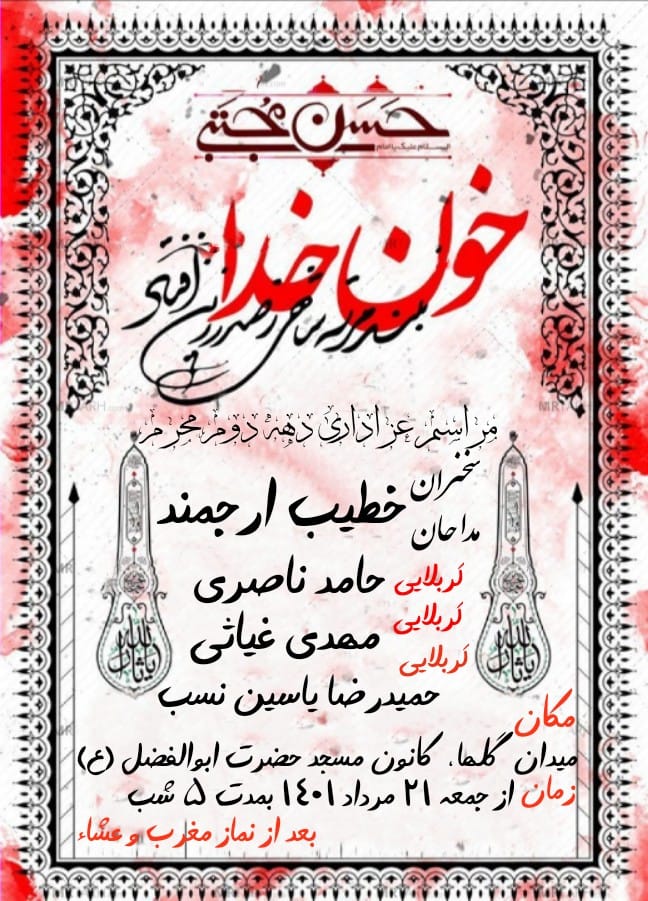 حسن مجتبی
السلام علیک یا امام
خون خدا
بلند مرتبه شاهی ز صدر زین افتاد
مراسم عزاداری دههٔ دوم محرم
سخنران
خطیب ارجمند
مداحان
کربلایی حامد ناصری
کربلایی مهدی غیاثی
کربلایی
حمیدرضا یاسین نسب
مکان
میدان گلها، کانون مسجد حضرت ابوالفضل (ع)
زمان از جمعه ۲۱ مرداد ۱۴۰۱ بمدت ۵ شب
بعد از نماز مغرب و عشاء
یا ثارالله
یا ثارالله